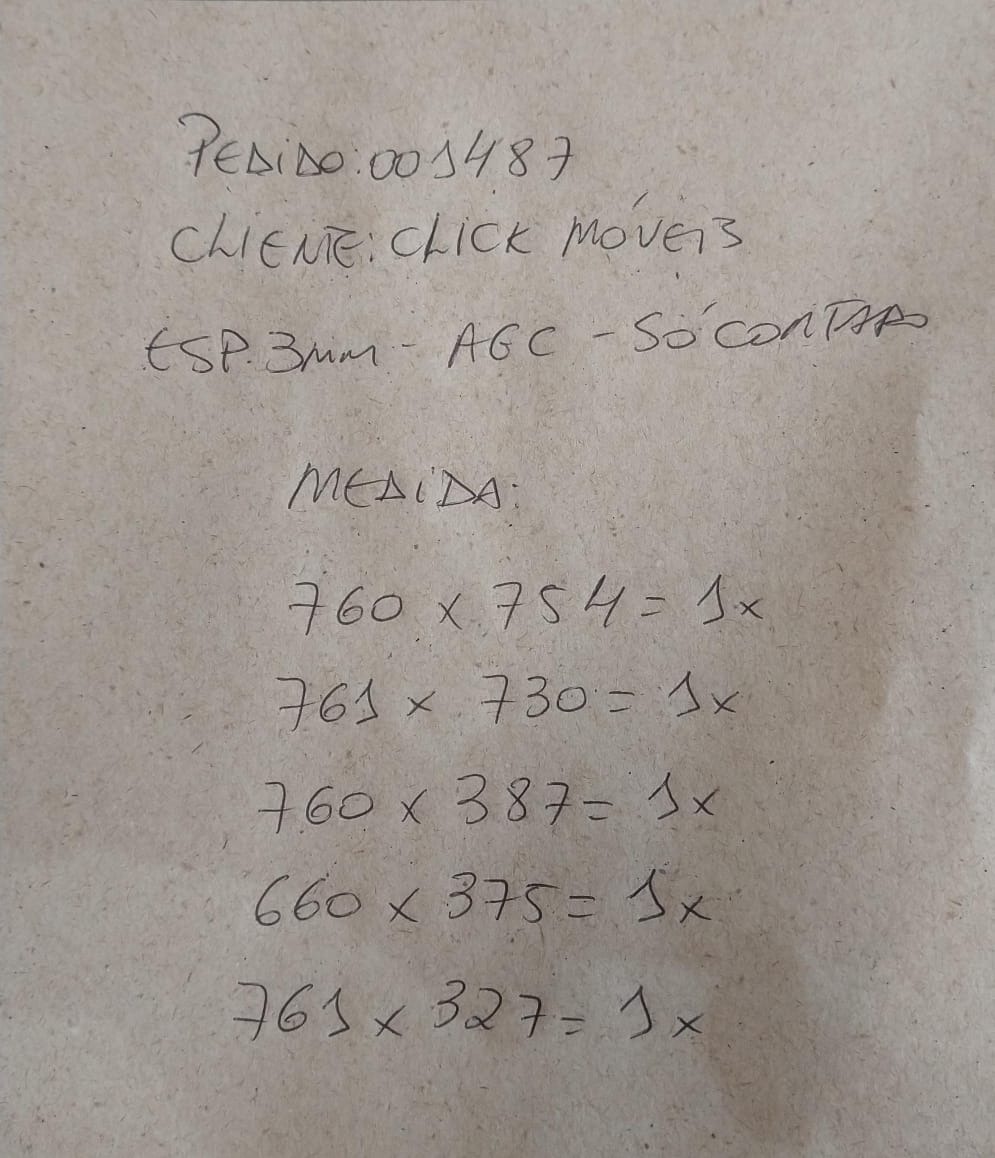 PEDIDO: 001487
CLIENTE: CLICK MÓVEIS
ESP. 3mm - AGC - SÓ CORTADO
MEDIDA:
760 x 754 = 1x
761 x 730 = 1x
760 x 387 = 1x
660 x 375 = 1x
761 x 327 = 1x